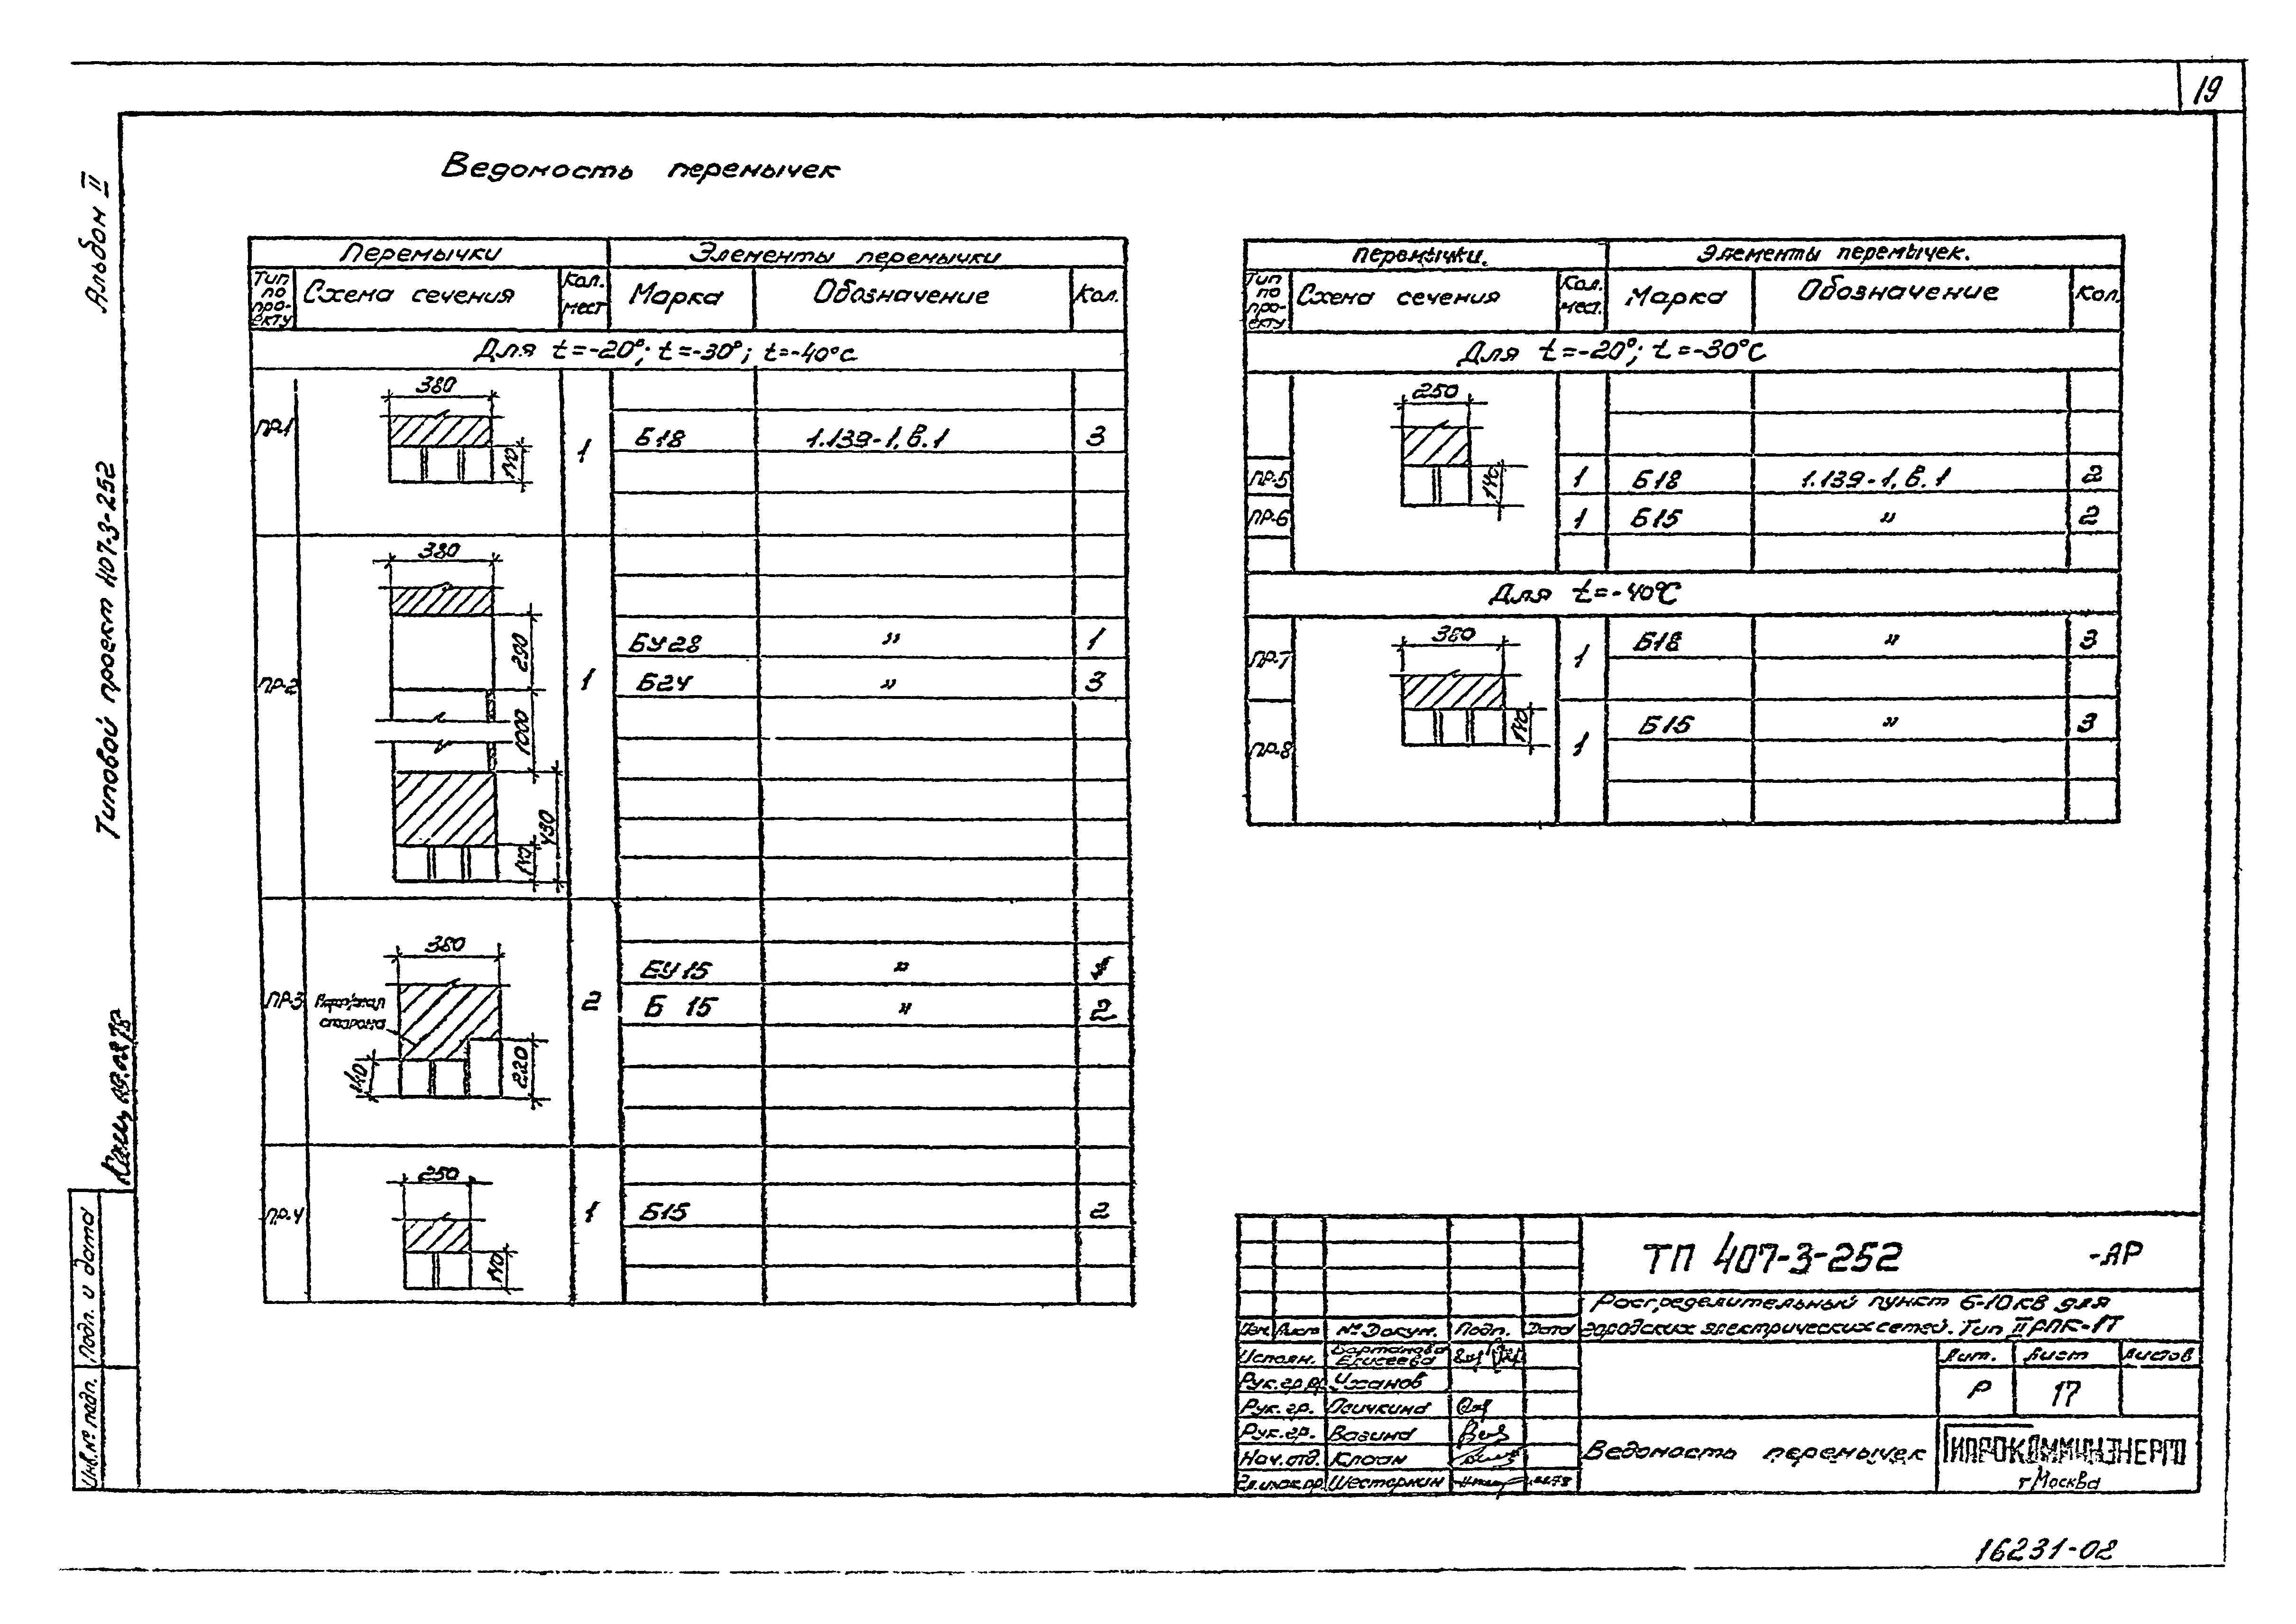 19
Альбом II
Типовой проект 407-3-252
Подп. и дата
Инв.№ подл.
Ведомость перемычек
Перемычки
Элементы перемычки
Тип по про-екту
Схема сечения
Кол. мест
Марка
Обозначение
Кол.
Для t=-20°; t=-30°; t=-40°C
ПР-1
380
140
1
Б18
1.139-1, в.1
3
ПР-2
380
290
1000
430
140
1
БУ28
"
1
Б24
"
3
ПР-3
380
сторона
140
220
2
БУ15
"
1
Б 15
"
2
ПР-4
250
140
1
Б15
2
перемычки.
Элементы перемычек.
Тип по про-екту
Схема сечения
Кол. мест.
Марка
Обозначение
Кол.
Для t=-20°; t=-30°C
250
140
ПР-5
1
Б18
1.139-1, в.1
2
ПР-6
1
Б15
"
2
Для t=-40°C
380
140
ПР-7
1
Б18
"
3
ПР-8
1
Б15
"
3
ТП 407-3-252 -АР
Распределительный пункт 6-10кв для
городских электрических сетей. Тип II РПК-1Т
Изм. Лист № Докум. Подп. Дата
Исполн. Елисеева
Рук.гр. Уханов
Рук.гр. Осичкина
Рук.гр. Вагина
Нач.отд. Клоан
Гл.инж.пр. Шестаркин
Лит. Лист Листов
Р 17
Ведомость перемычек
ГИПРОКОММУНЭНЕРГО
г Москва
16231-02